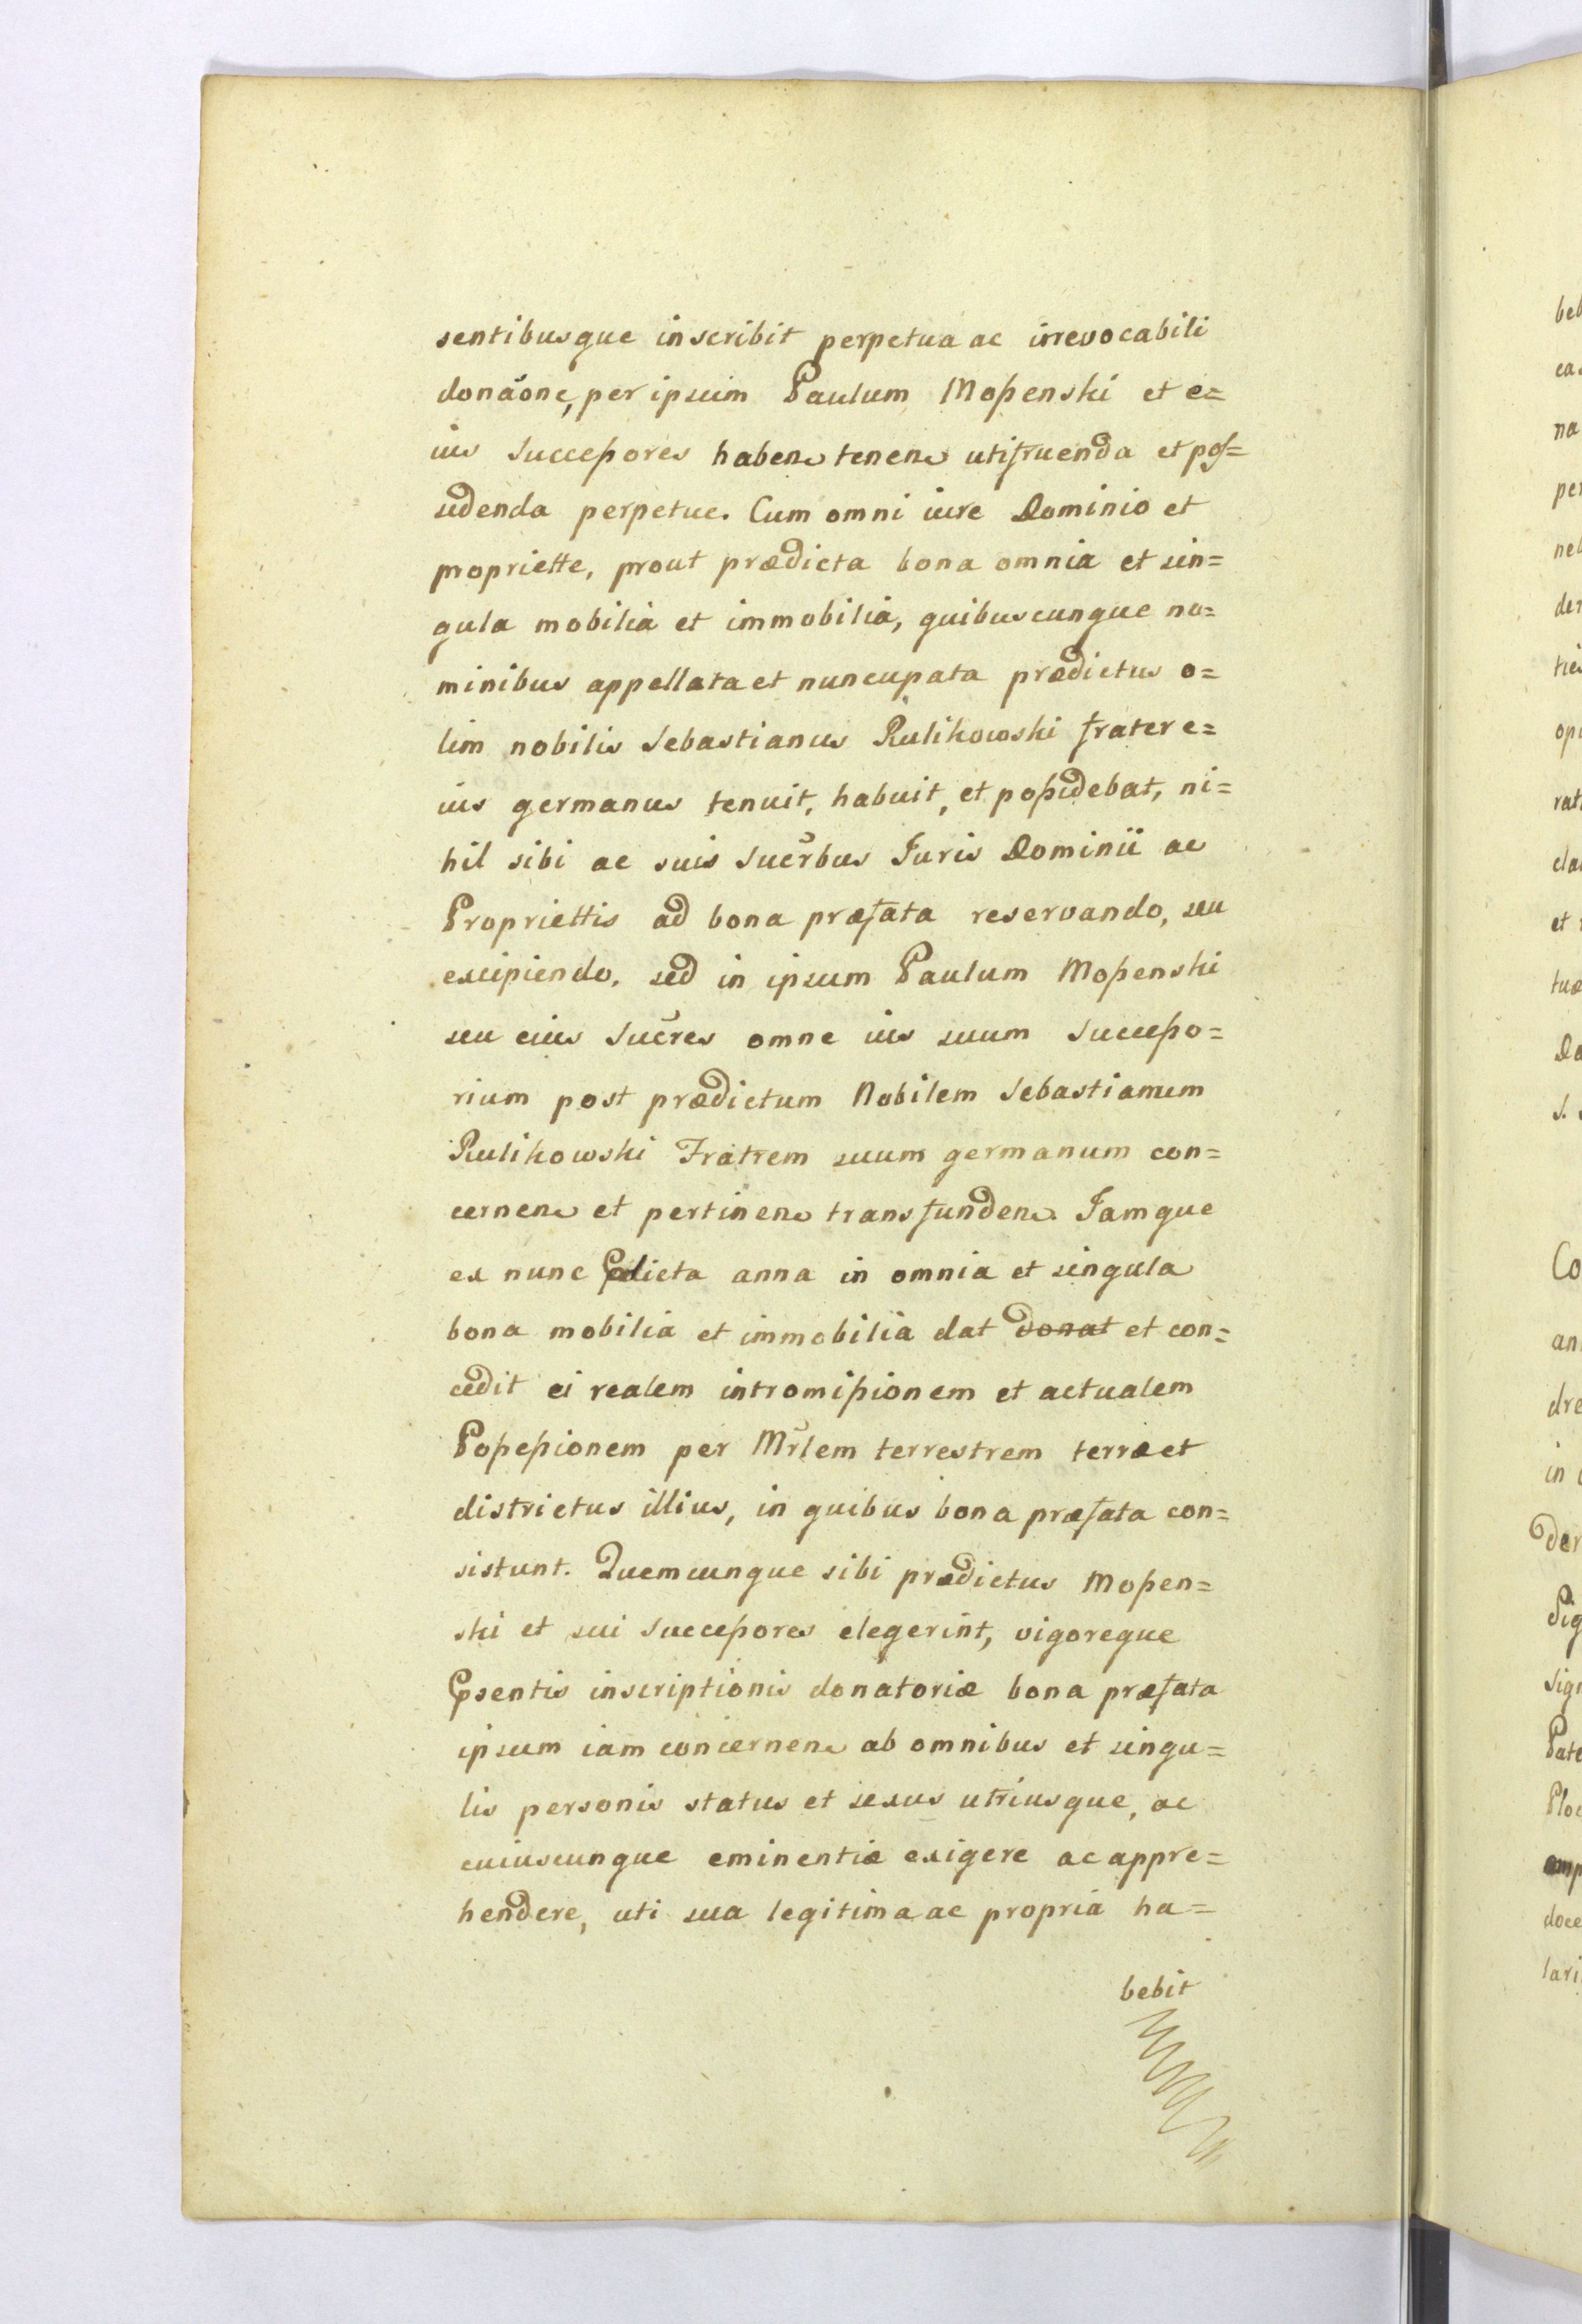 sentibusque inscribit perpetua ac irrevocabili
donãone, per ipsum Paulum Moszenski et e=
ius Successores haben. tenen. utifruenda et pos=
sidenda perpetue. Cum omni iure Dominio et
propriette, prout prædicta bona omnia et sin=
gula mobilia et immobilia, quibuscunque no=
minibus appellata et nuncupata prædictus o=
lim nobilis Sebastianus Rulikowski frater e=
ius germanus tenuit, habuit, et possidebat, ni=
hil sibi ac suis Sucr̃bus Juris Dominii ac
Propriettis ad bona præfata reservando, seu
excipiendo. sed in ipsum Paulum Moszenski
seu eius Sucr̃es omne ius suum Successo=
rium post prædictum Nobilem Sebastianum
Rulikowski Fratrem suum germanum con=
cernen. et pertinen. transfunden. Jamque
ex nunc Pdicta anna in omnia et singula
bona mobilia et immobilia dat donat et con=
cedit ei realem intromissionem et actualem
Possessionem per Mr̃lem terrestrem terræ et
districtus illius, in quibus bona præfata con=
sistunt. Quemcunque sibi prædictus Moszen=
ski et sui Successores elegerint, vigoreque
Psentis inscriptionis donatoriæ bona præfata
ipsum iam concernen. ab omnibus et singu=
lis personis status et sexus utriusque, ac
cuiuscunque eminentiæ exigere ac appre=
hendere, uti sua legitima ac propria ha=
bebit